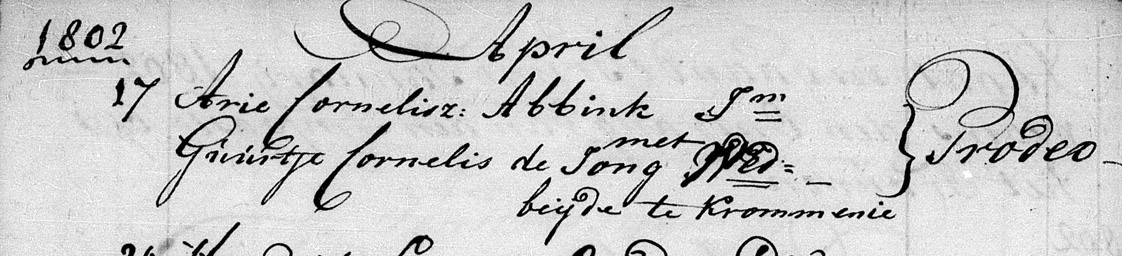 1802 April
17 Arie Cornelisz: Abbink Jm } Prodeo
met
Guurtje Cornelis de Jong WED=
beijde te Krommenie